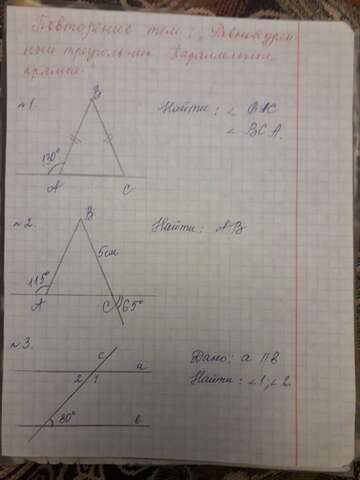 Повторение тем: „Равнобедрен
ный треугольник. Параллельные
прямые.
№1.
B
Найти: ∠ BAC
∠ BCA.
130°
A
C
№2.
B
Найти: AB
5см
115°
A
C
65°
№3.
c
a
Дано: a || b
2
1
Найти: ∠1; ∠2.
80°
b